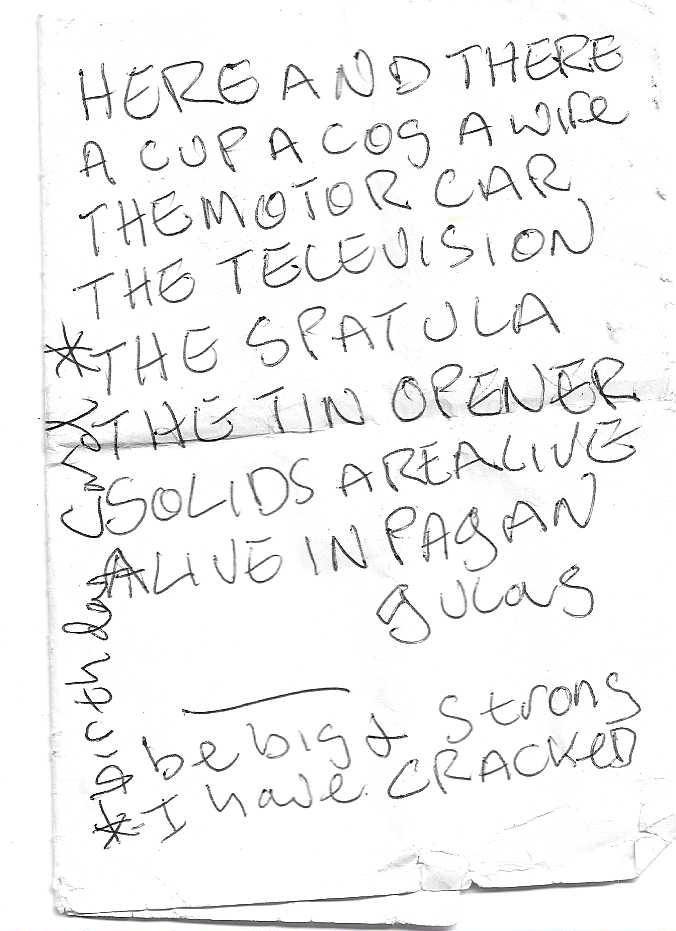 HERE AND THERE
A CUP A COG A WIFE
THE MOTOR CAR
THE TELEVISION
*THE SPATULA
THE TIN OPENER
SOLIDS ARE ALIVE
ALIVE IN PAGAN
gulag
be big & strong
I have CRACKED
* birthday Card